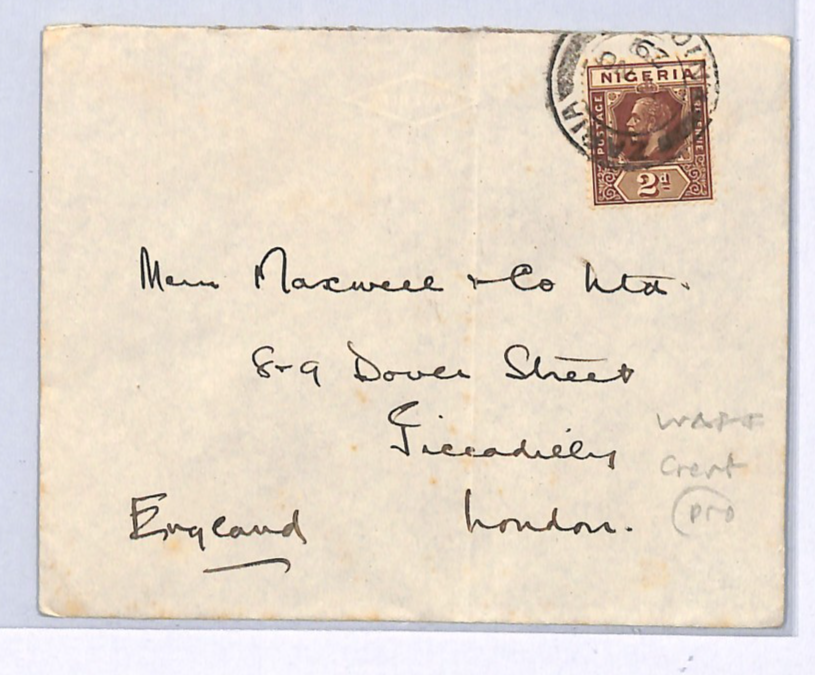 NIGERIA
POSTAGE REVENUE
2d
Messrs Maxwell & Co Ltd.
8-9 Dover Street
Piccadilly
England London.
Crest
pro